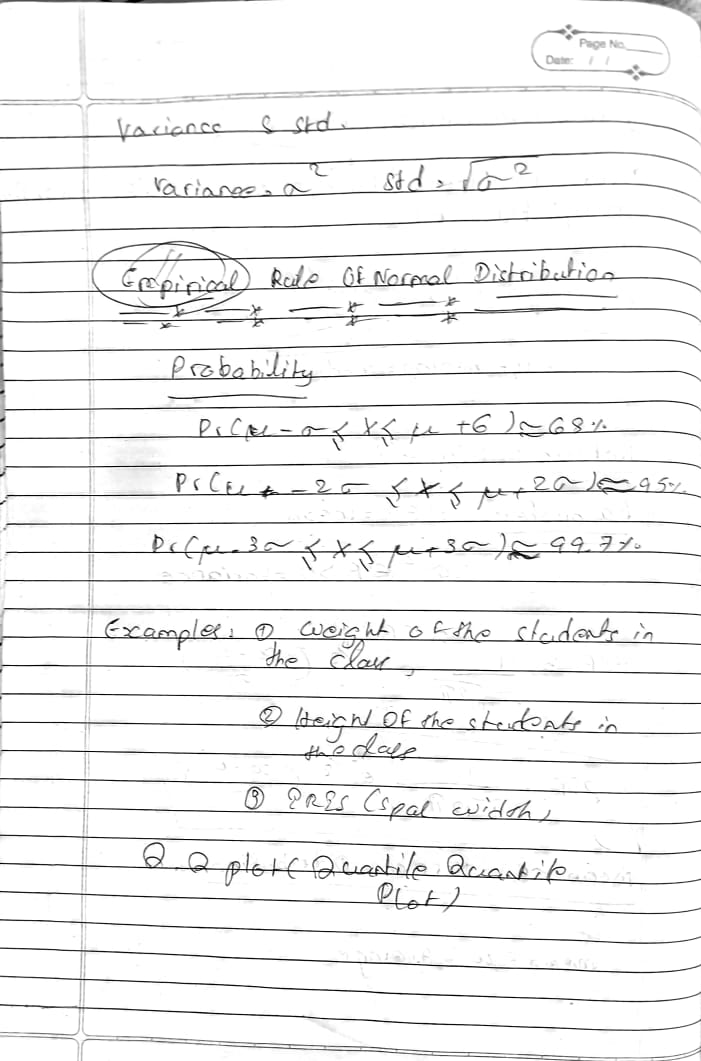 Page No.
Date: / /
Variance & std.
Variance = σ² std = √σ²
Empirical Rule Of Normal Distribution
Probability
Pr(μ - σ ≤ X ≤ μ + 6) ≈ 68%
Pr(μ - 2σ ≤ X ≤ μ + 2σ) ≈ 95%
Pr(μ - 3σ ≤ X ≤ μ + 3σ) ≈ 99.7%
Examples: ① Weight of the students in
the class,
② Height Of the students in
the class
③ IRIS (spal width,
Q. Q plot (Quantile Quantile
Plot)